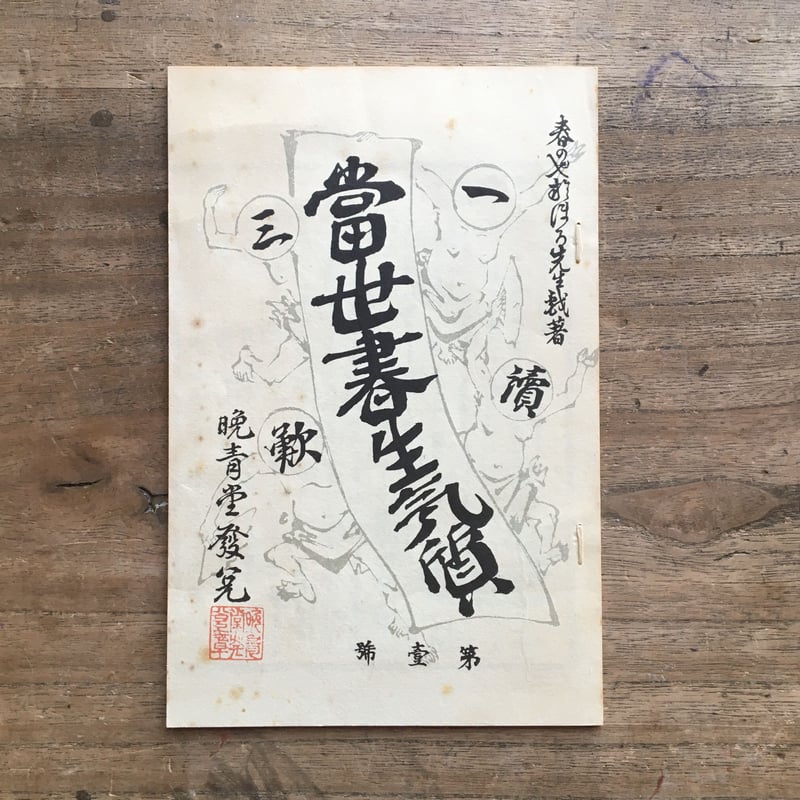 春のや於ほろ先生戯著
一讀三歎
當世書生氣質
晩青堂發兌
第壹號